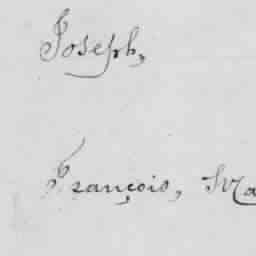 Joseph,
François,